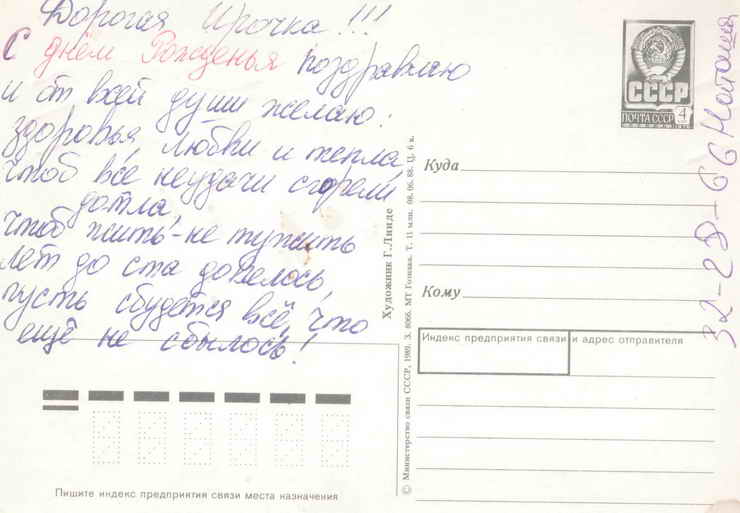 Дорогая Ирочка!!!
С днём Рожденья поздравляю
и от всей души желаю:
здоровья, любви и тепла,
чтоб все неудачи сгорели
дотла,
чтоб жить-не тужить
лет до ста довелось,
пусть сбудется всё, что
ещё не сбылось!
Пишите индекс предприятия связи места назначения
© Министерство связи СССР, 1989. З. 8066. МТ Гознака. Т. 11 млн. 08.06.88. Ц. 6 к.
Художник Г. Линде
СССР
ПОЧТА СССР 4
Куда
Кому
Индекс предприятия связи и адрес отправителя
32-28-66 Наташа